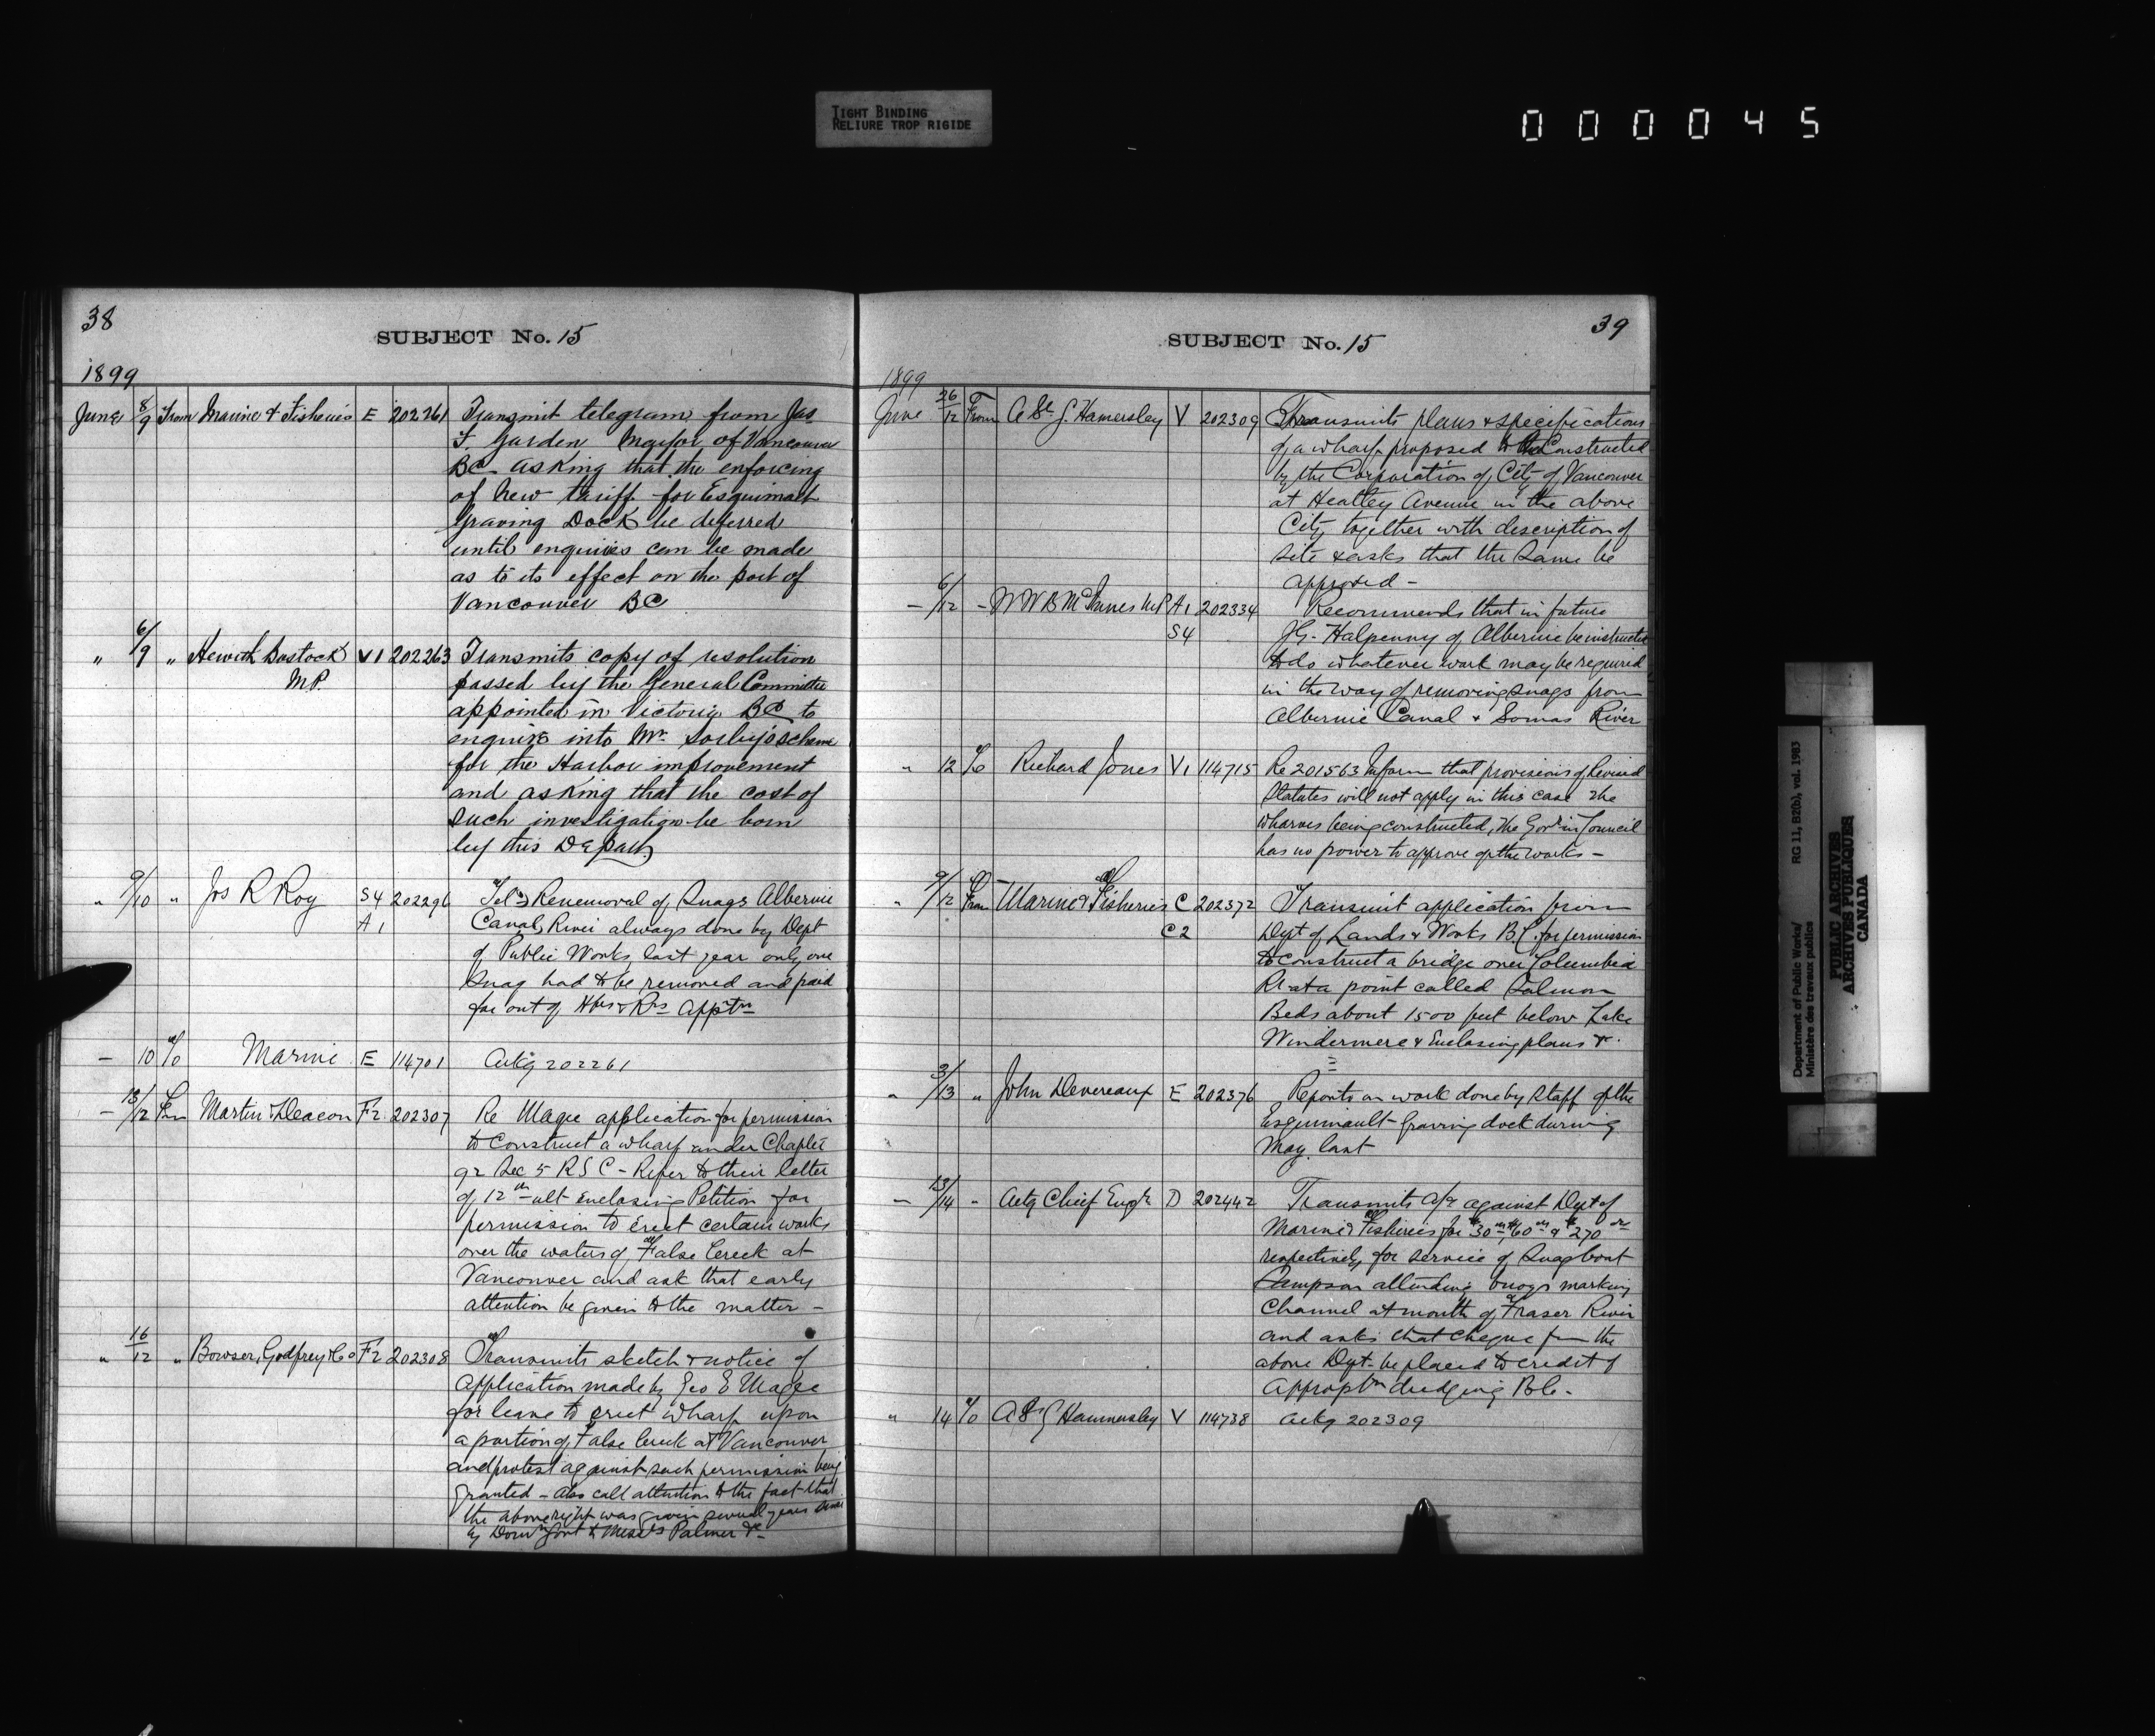 TIGHT BINDING
RELIURE TROP RIGIDE
000045
38
SUBJECT No. 15
1899
June 8/9 From Marine & Fisheries E 202261 Transmit telegram from Jas
F. Garden Mayor of Vancouver
BC asking that the enforcing
of new tariff for Esquimalt
Graving Dock be deferred
until enquiries can be made
as to its effect on the port of
Vancouver BC
" 6/9 " Hewitt Bostock V1 202263 Transmits copy of resolution
MP. passed by the General Committee
appointed in Victoria BC to
enquire into Mr. Sorby's scheme
for the Harbor improvement
and asking that the cost of
such investigation be born
by this Depart
" 9/10 " Jos R Roy S4 202296 Tel) Renemoval of Snags Albernie
A1 Canal, River always done by Dept
of Public Works last year only one
Snag had to be removed and paid
for out of Hbrs & Rrs Apptn
— 10 To Marine E 114701 Ackg 202261
— 13/12 Fm Martin & Deacon F2 202307 Re Magee application for permission
to construct a wharf under Chapter
92 Sec 5 RSC - Refer to their letter
of 12th ult enclosing Petition for
permission to erect certain works
over the waters of False Creek at
Vancouver and ask that early
attention be given to the matter —
" 16/12 " Bowser, Godfrey & Co F2 202308 Transmits sketch & notice of
application made by Geo E Magee
for leave to erect wharf upon
a portion of False Creek at Vancouver
and protest against such permission being
granted - also call attention to the fact that
the above right was given several years since
by Domn Govt to Messrs Palmer &c -
39
SUBJECT No. 15
1899
June 26/12 From A St. G. Hamersley V 202309 Transmits plans & specifications
of a wharf proposed to be constructed
by the Corporation of City of Vancouver
at Heatley Avenue in the above
City together with description of
site & asks that the same be
approved -
— 6/12 - W W B McInnes MP A1 202334 Recommends that in future
S4 J G. Halpenny of Albernie be instructed
to do whatever work may be required
in the way of removing snags from
Albernie Canal & Somas River
" 12 To Richard Jones V1 114715 Re 201563 Inform that provisions of Revised
Statutes will not apply in this case the
wharves being constructed, the Govr in Council
has no power to approve of the works —
" 9/12 From Marine & Fisheries C 202372 Transmit application from
C2 Dept of Lands & Works B.C. for permission
to construct a bridge over Columbia
R. at a point called Salmon
Beds about 1500 feet below Lake
Windermere & Enclosing plans &.
" 3/13 " John Devereaux E 202376 Reports on work done by staff of the
Esquimault Graving dock during
May last
— 13/14 " Actg Chief Engr D 202442 Transmits a/c against Dept of
Marine & Fisheries for $30 $60 & $270
respectively for service of Snagboat
Sampson attending buoys marking
Channel at mouth of Fraser River
and asks that cheque from the
above Dept be placed to credit of
Appropbn dredging B.C.
" 14 To A St G Hamersley V 114738 Ackg 202309
Department of Public Works/ RG 11, B2(b), vol. 1983
Ministère des travaux publics
PUBLIC ARCHIVES
ARCHIVES PUBLIQUES
CANADA